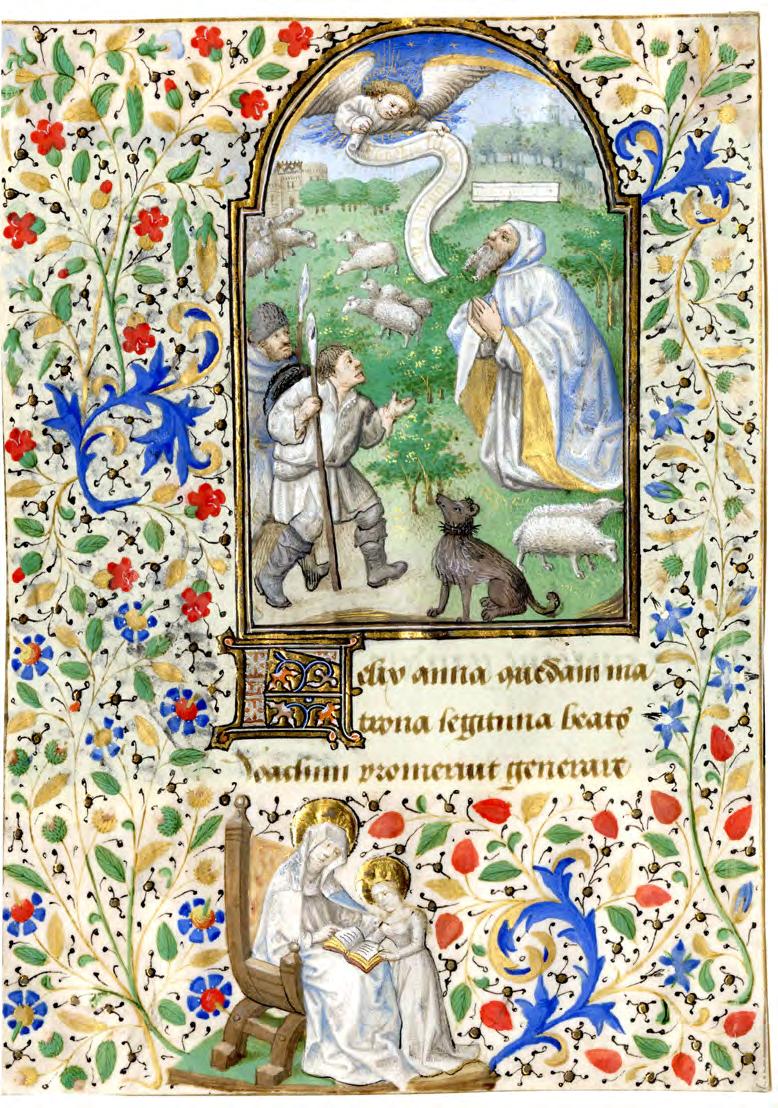 Felix anna quedam ma
trona legittima beato
Joachim promeruit generare